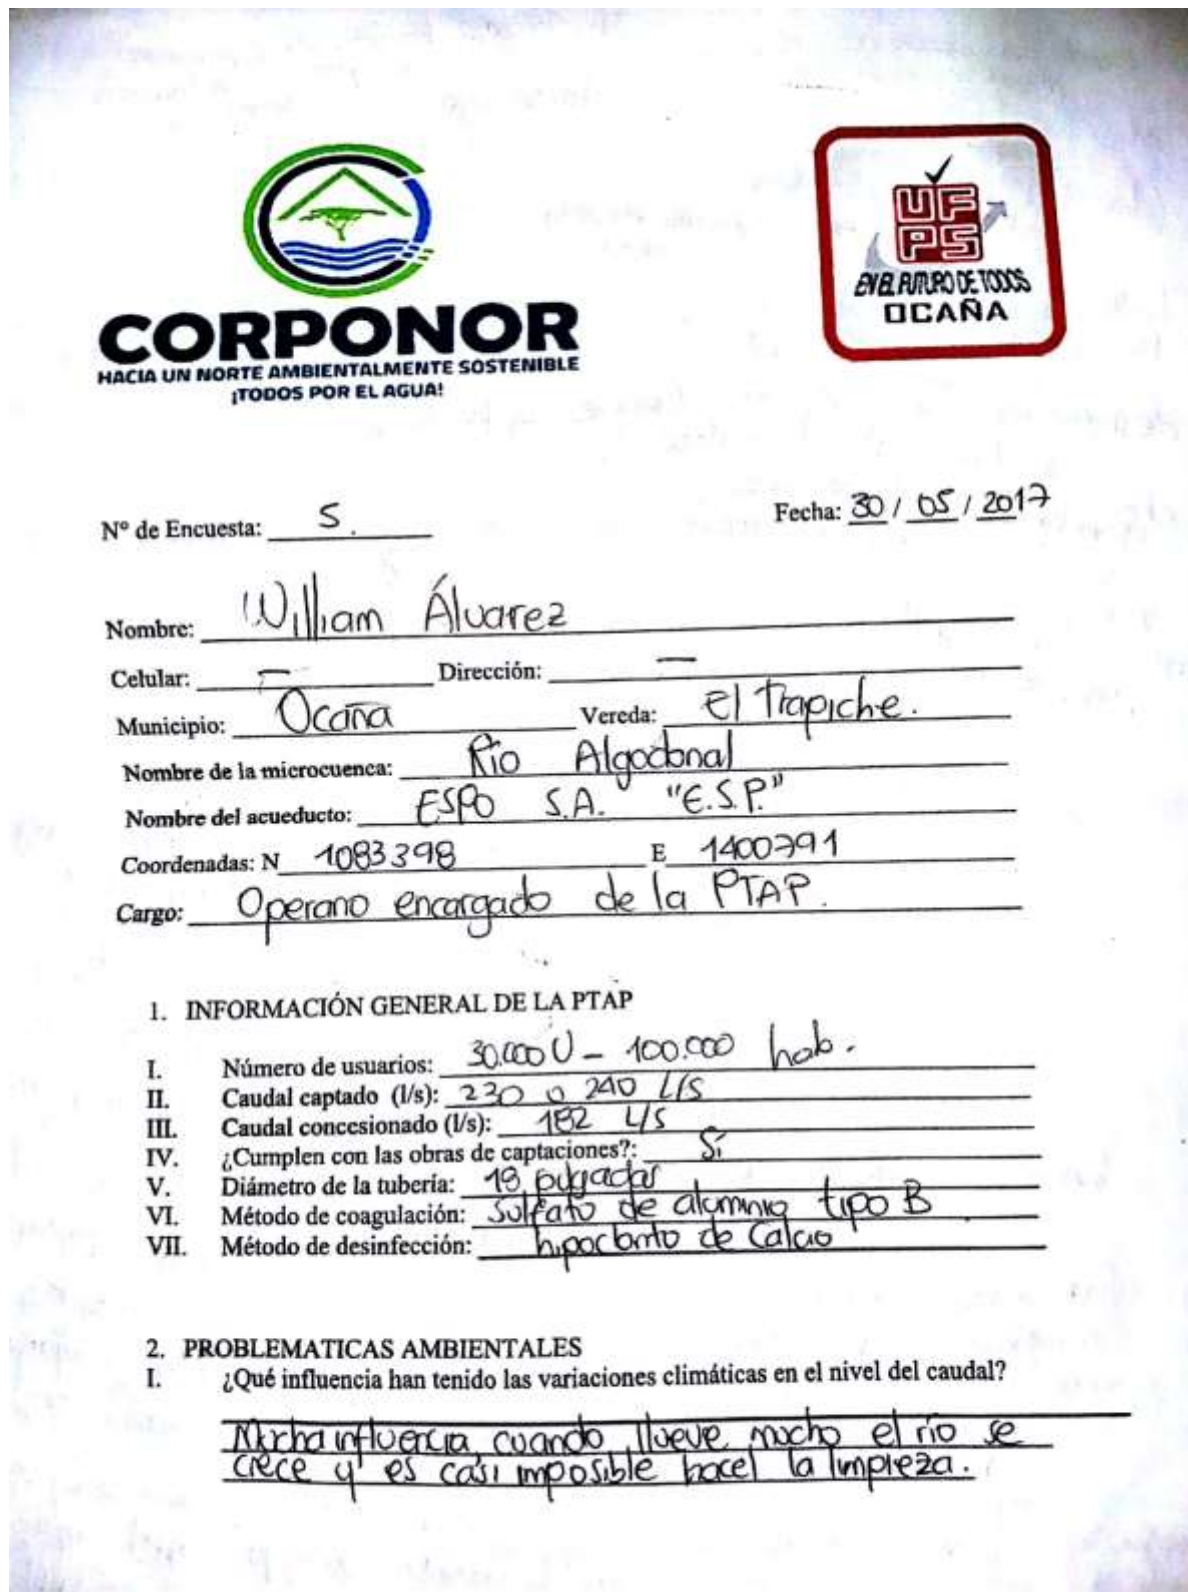 CORPONOR
HACIA UN NORTE AMBIENTALMENTE SOSTENIBLE
¡TODOS POR EL AGUA!
UF
PS
EN EL FUTURO DE TODOS
OCAÑA
Nº de Encuesta: 5.
Fecha: 30 / 05 / 2017
Nombre: William Álvarez
Celular: — Dirección: —
Municipio: Ocaña Vereda: El Trapiche.
Nombre de la microcuenca: Río Algodonal
Nombre del acueducto: ESPO S.A. "E.S.P."
Coordenadas: N 1083398 E 1400791
Cargo: Operario encargado de la PTAP.
1. INFORMACIÓN GENERAL DE LA PTAP
I. Número de usuarios: 30.000 U - 100.000 hab.
II. Caudal captado (l/s): 230 o 240 L/S
III. Caudal concesionado (l/s): 182 L/S
IV. ¿Cumplen con las obras de captaciones?: Sí
V. Diámetro de la tubería: 18 pulgadas
VI. Método de coagulación: Sulfato de aluminio tipo B
VII. Método de desinfección: hipoclorito de Calcio
2. PROBLEMATICAS AMBIENTALES
I. ¿Qué influencia han tenido las variaciones climáticas en el nivel del caudal?
Mucha influencia, cuando llueve mucho el río se
crece y es casi imposible hacer la limpieza.